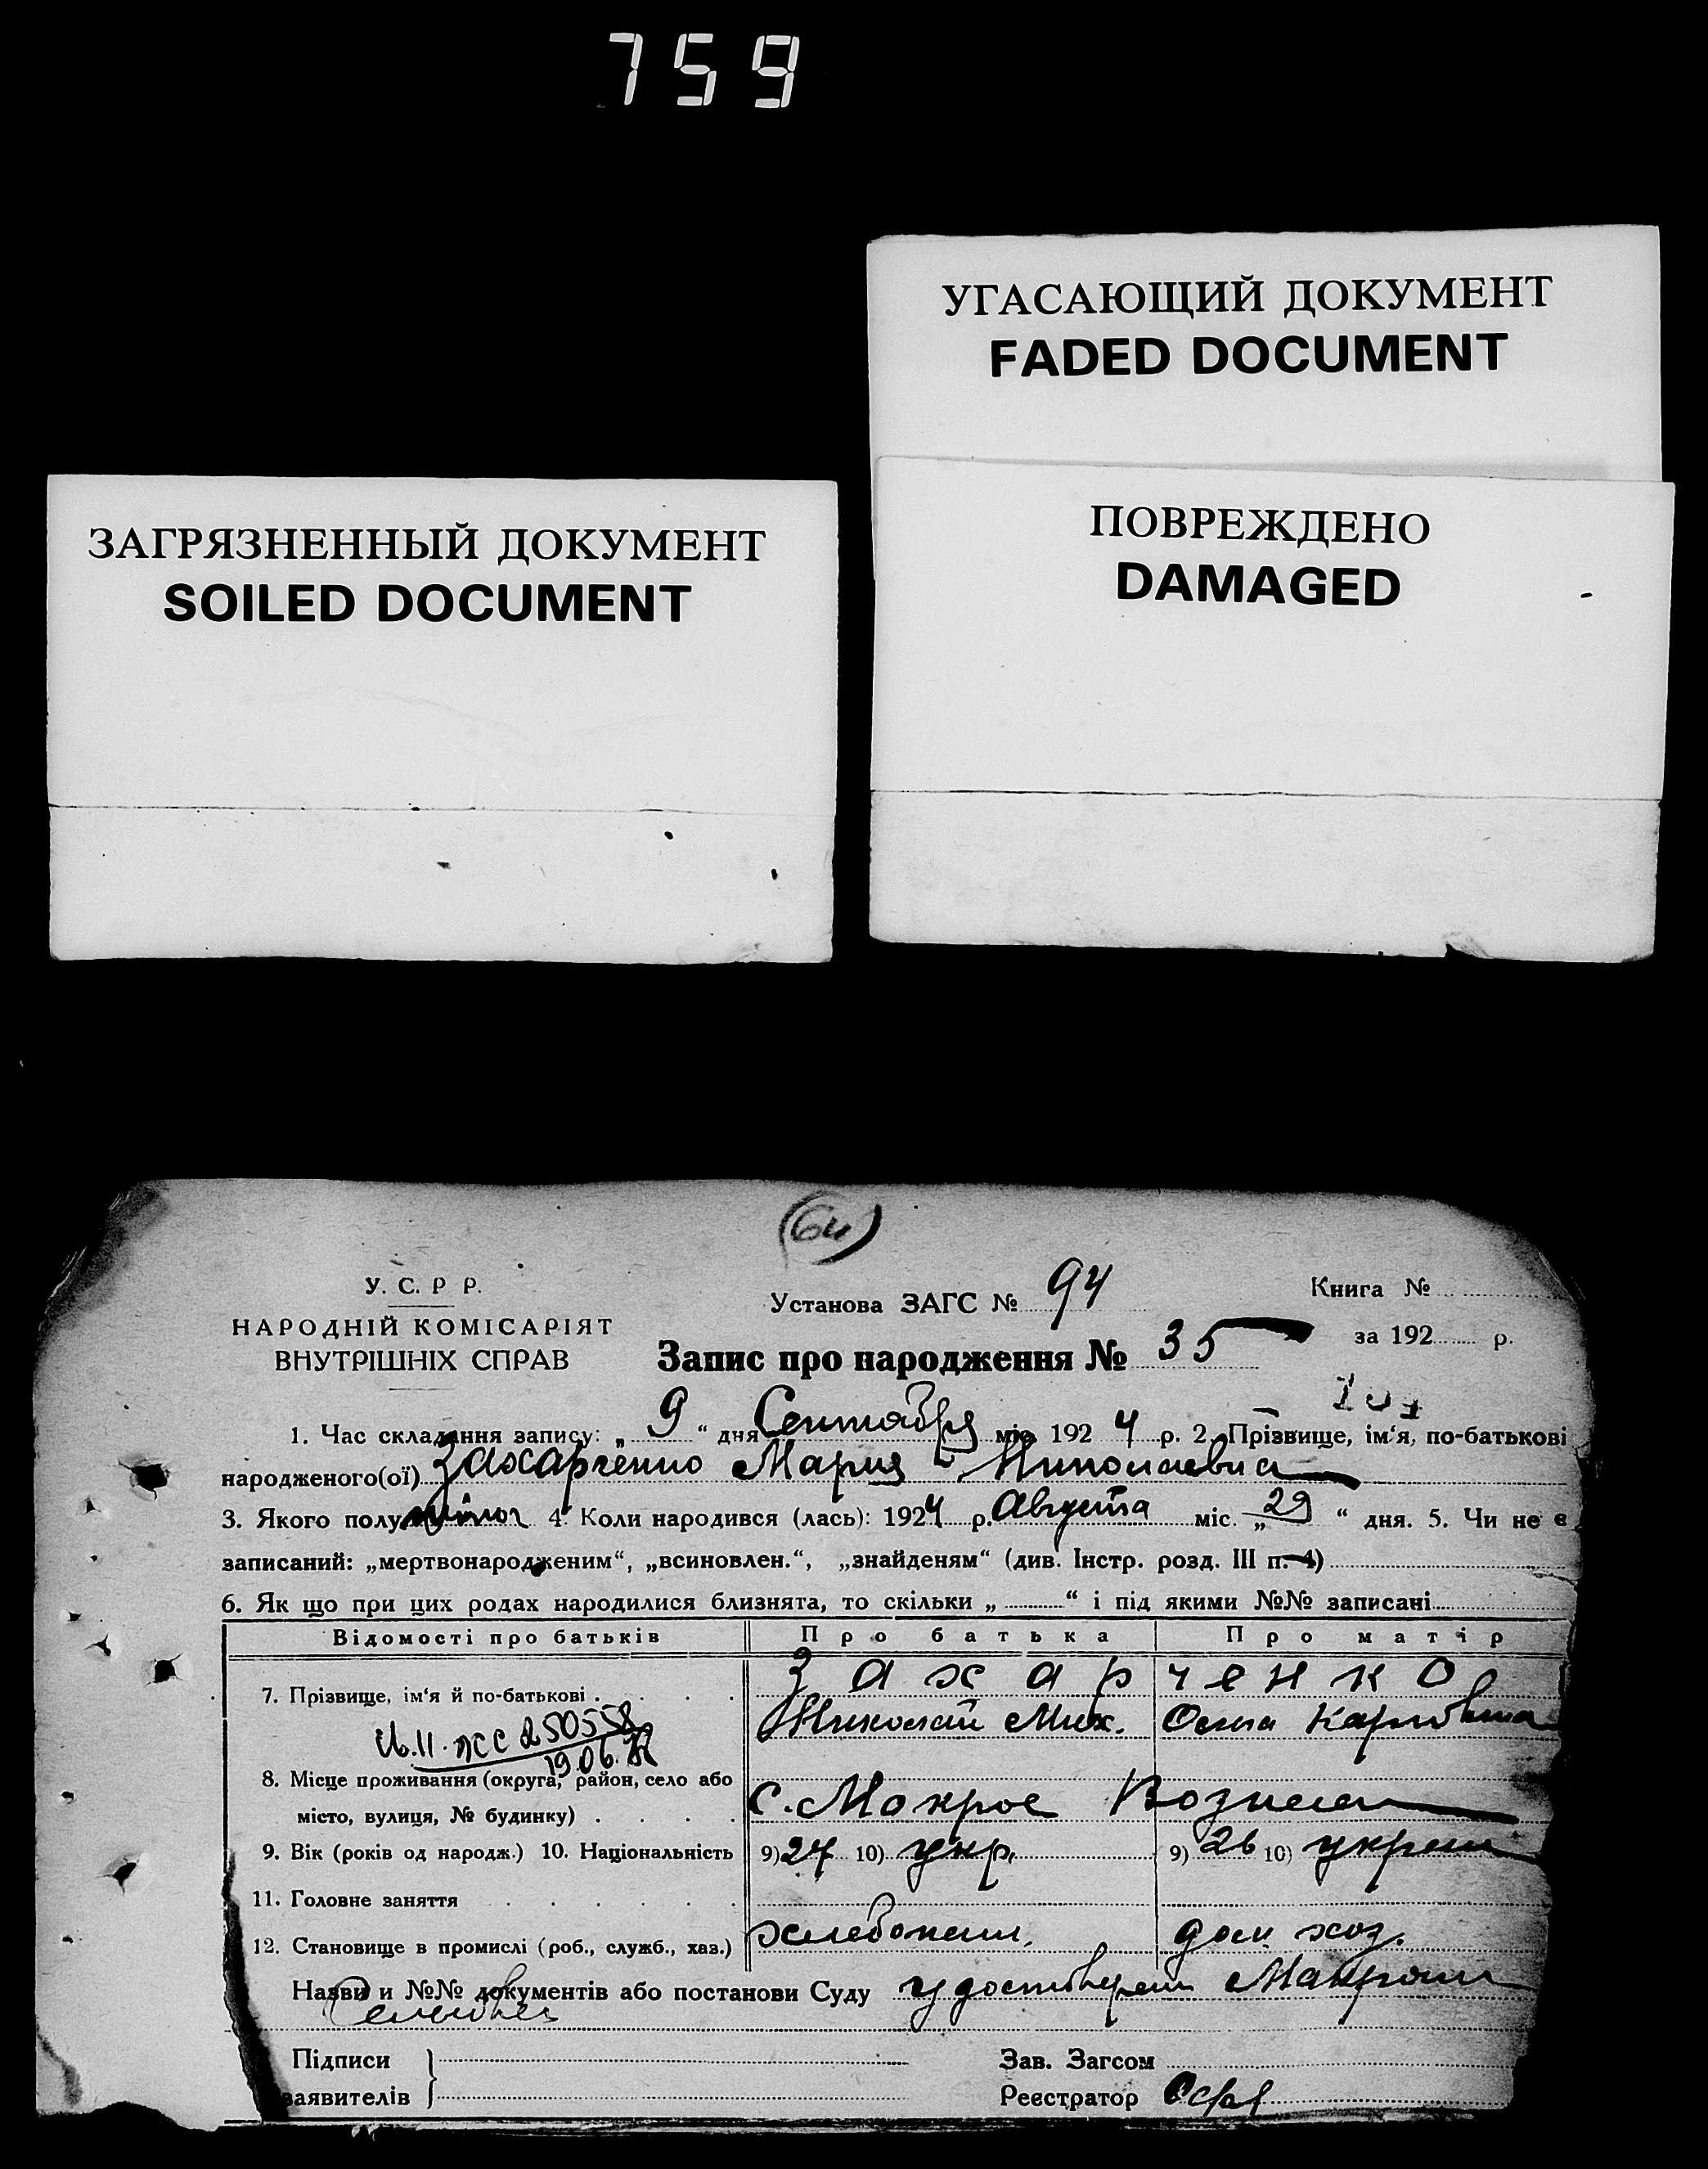 759
УГАСАЮЩИЙ ДОКУМЕНТ
FADED DOCUMENT
ЗАГРЯЗНЕННЫЙ ДОКУМЕНТ
SOILED DOCUMENT
ПОВРЕЖДЕНО
DAMAGED
У. С. Р Р.
Установа ЗАГС № 94
Книга №
НАРОДНІЙ КОМІСАРІЯТ
ВНУТРІШНІХ СПРАВ
Запис про народження № 35
за 192 р.
1. Час складання запису: „ 9 “ дня Сентября міс 192 4 р. 2. Прізвище, ім‘я, по-батькові
народженого(ої) Захарченко Мария Николаевна
3. Якого полу 4. Коли народився (лась): 1924 р. Августа міс. „ 29 “ дня. 5. Чи не є
записаний: „мертвонародженим“, „всиновлен.“, „знайденям“ (див. Інстр. розд. III п. 4)
6. Як що при цих родах народилися близнята, то скільки „ “ і під якими №№ записані
Відомості про батьків Про батька Про матір
7. Прізвище, ім‘я й по-батькові Захарченко
Николай Мих. Карповна
250558
19.06.
8. Місце проживання (округа, район, село або
місто, вулиця, № будинку) с. Мокрое
9. Вік (років од народж.) 10. Національність 9) 27 10) укр. 9) 26 10)
11. Головне заняття
12. Становище в промислі (роб., служб., хаз.) хлебопаш. дом хоз.
Назви и №№ документів або постанови Суду удостоверен
Підписи
заявителів
Зав. Загсом
Реєстратор